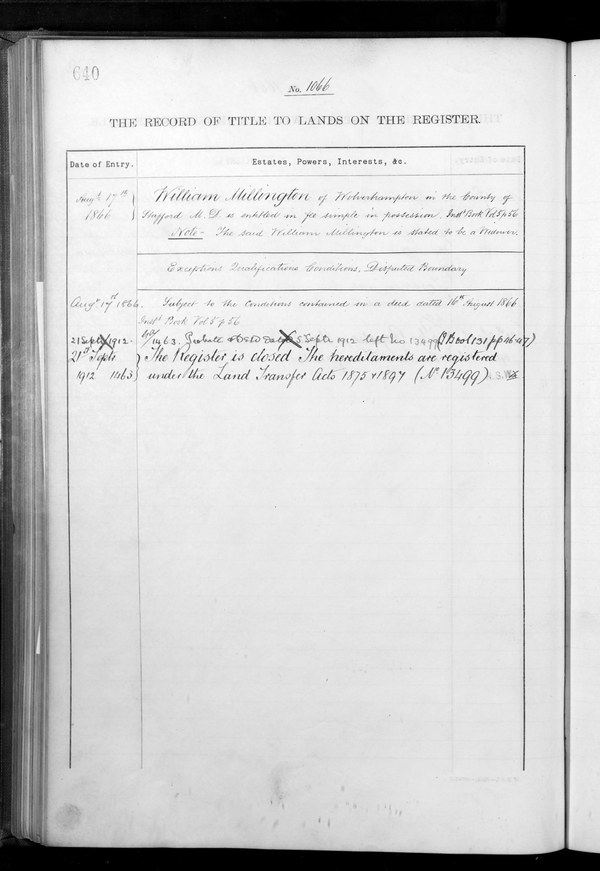 640
No. 1066
THE RECORD OF TITLE TO LANDS ON THE REGISTER.
Date of Entry.
Estates, Powers, Interests, &c.
Augt 17th 1866
William Millington of Wolverhampton in the County of
Stafford M.D. is entitled in fee simple in possession. Instt Book Vol 5 p 56
Note - The said William Millington is stated to be a Widower
Exceptions Qualifications Conditions, Disputed Boundary
Augt 17th 1866.
Subject to the Conditions contained in a deed dated 16th August 1866
Instt Book Vol 5 p 56
21 Septr 1912
1463. 5 Septr 1912 left No 13499 (I Book 131 pp 46-47)
21st Septr
The Register is closed The hereditaments are registered
1912 1463
under the Land Transfer Acts 1875 & 1897 (No 13499)